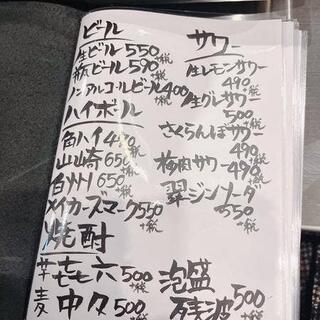 ビール
生ビール 550 +税
瓶ビール 590 +税
ノンアルコールビール 400 +税
ハイボール
角ハイ 490 +税
山崎 650 +税
白州 650 +税
メイカーズマーク 550 +税
焼酎
芋 七六 500 +税
麦 中々 500 +税
サワー
生レモンサワー
490 +税
生グレサワー
500 +税
さくらんぼサワー
490 +税
梅肉サワー 490 +税
翠ジンソーダ
550 +税
泡盛
残波 500 +税